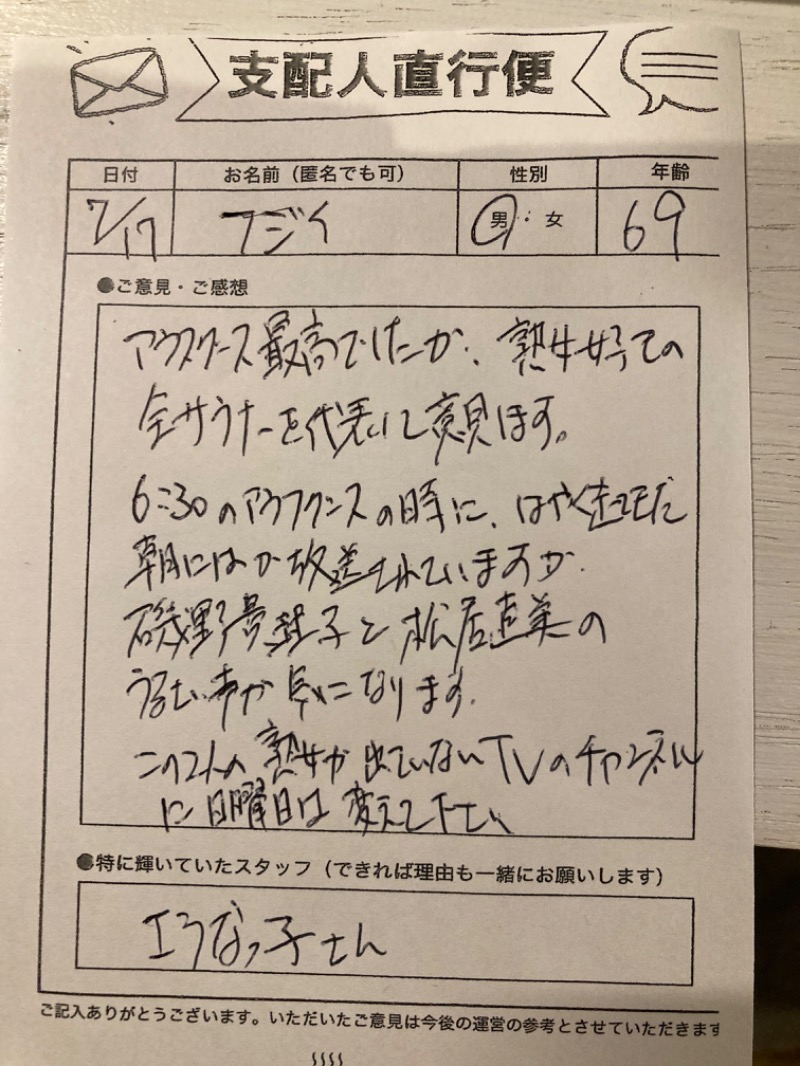 支配人直行便
日付 お名前（匿名でも可） 性別 年齢
7/17 フジイ 男・女 69
●ご意見・ご感想
アウフグース最高でしたが、熟女好きの
全サウナーを代表して意見します。
6:30のアウフグースの時に、はやく起きた
朝にはが放送されていますが
磯野貴理子と松居直美の
うるさい声が気になります。
この2人の熟女が出ていないTVのチャンネル
に日曜日は変えて下さい
●特に輝いていたスタッフ（できれば理由も一緒にお願いします）
エうなっ子さん
ご記入ありがとうございます。いただいたご意見は今後の運営の参考とさせていただきます